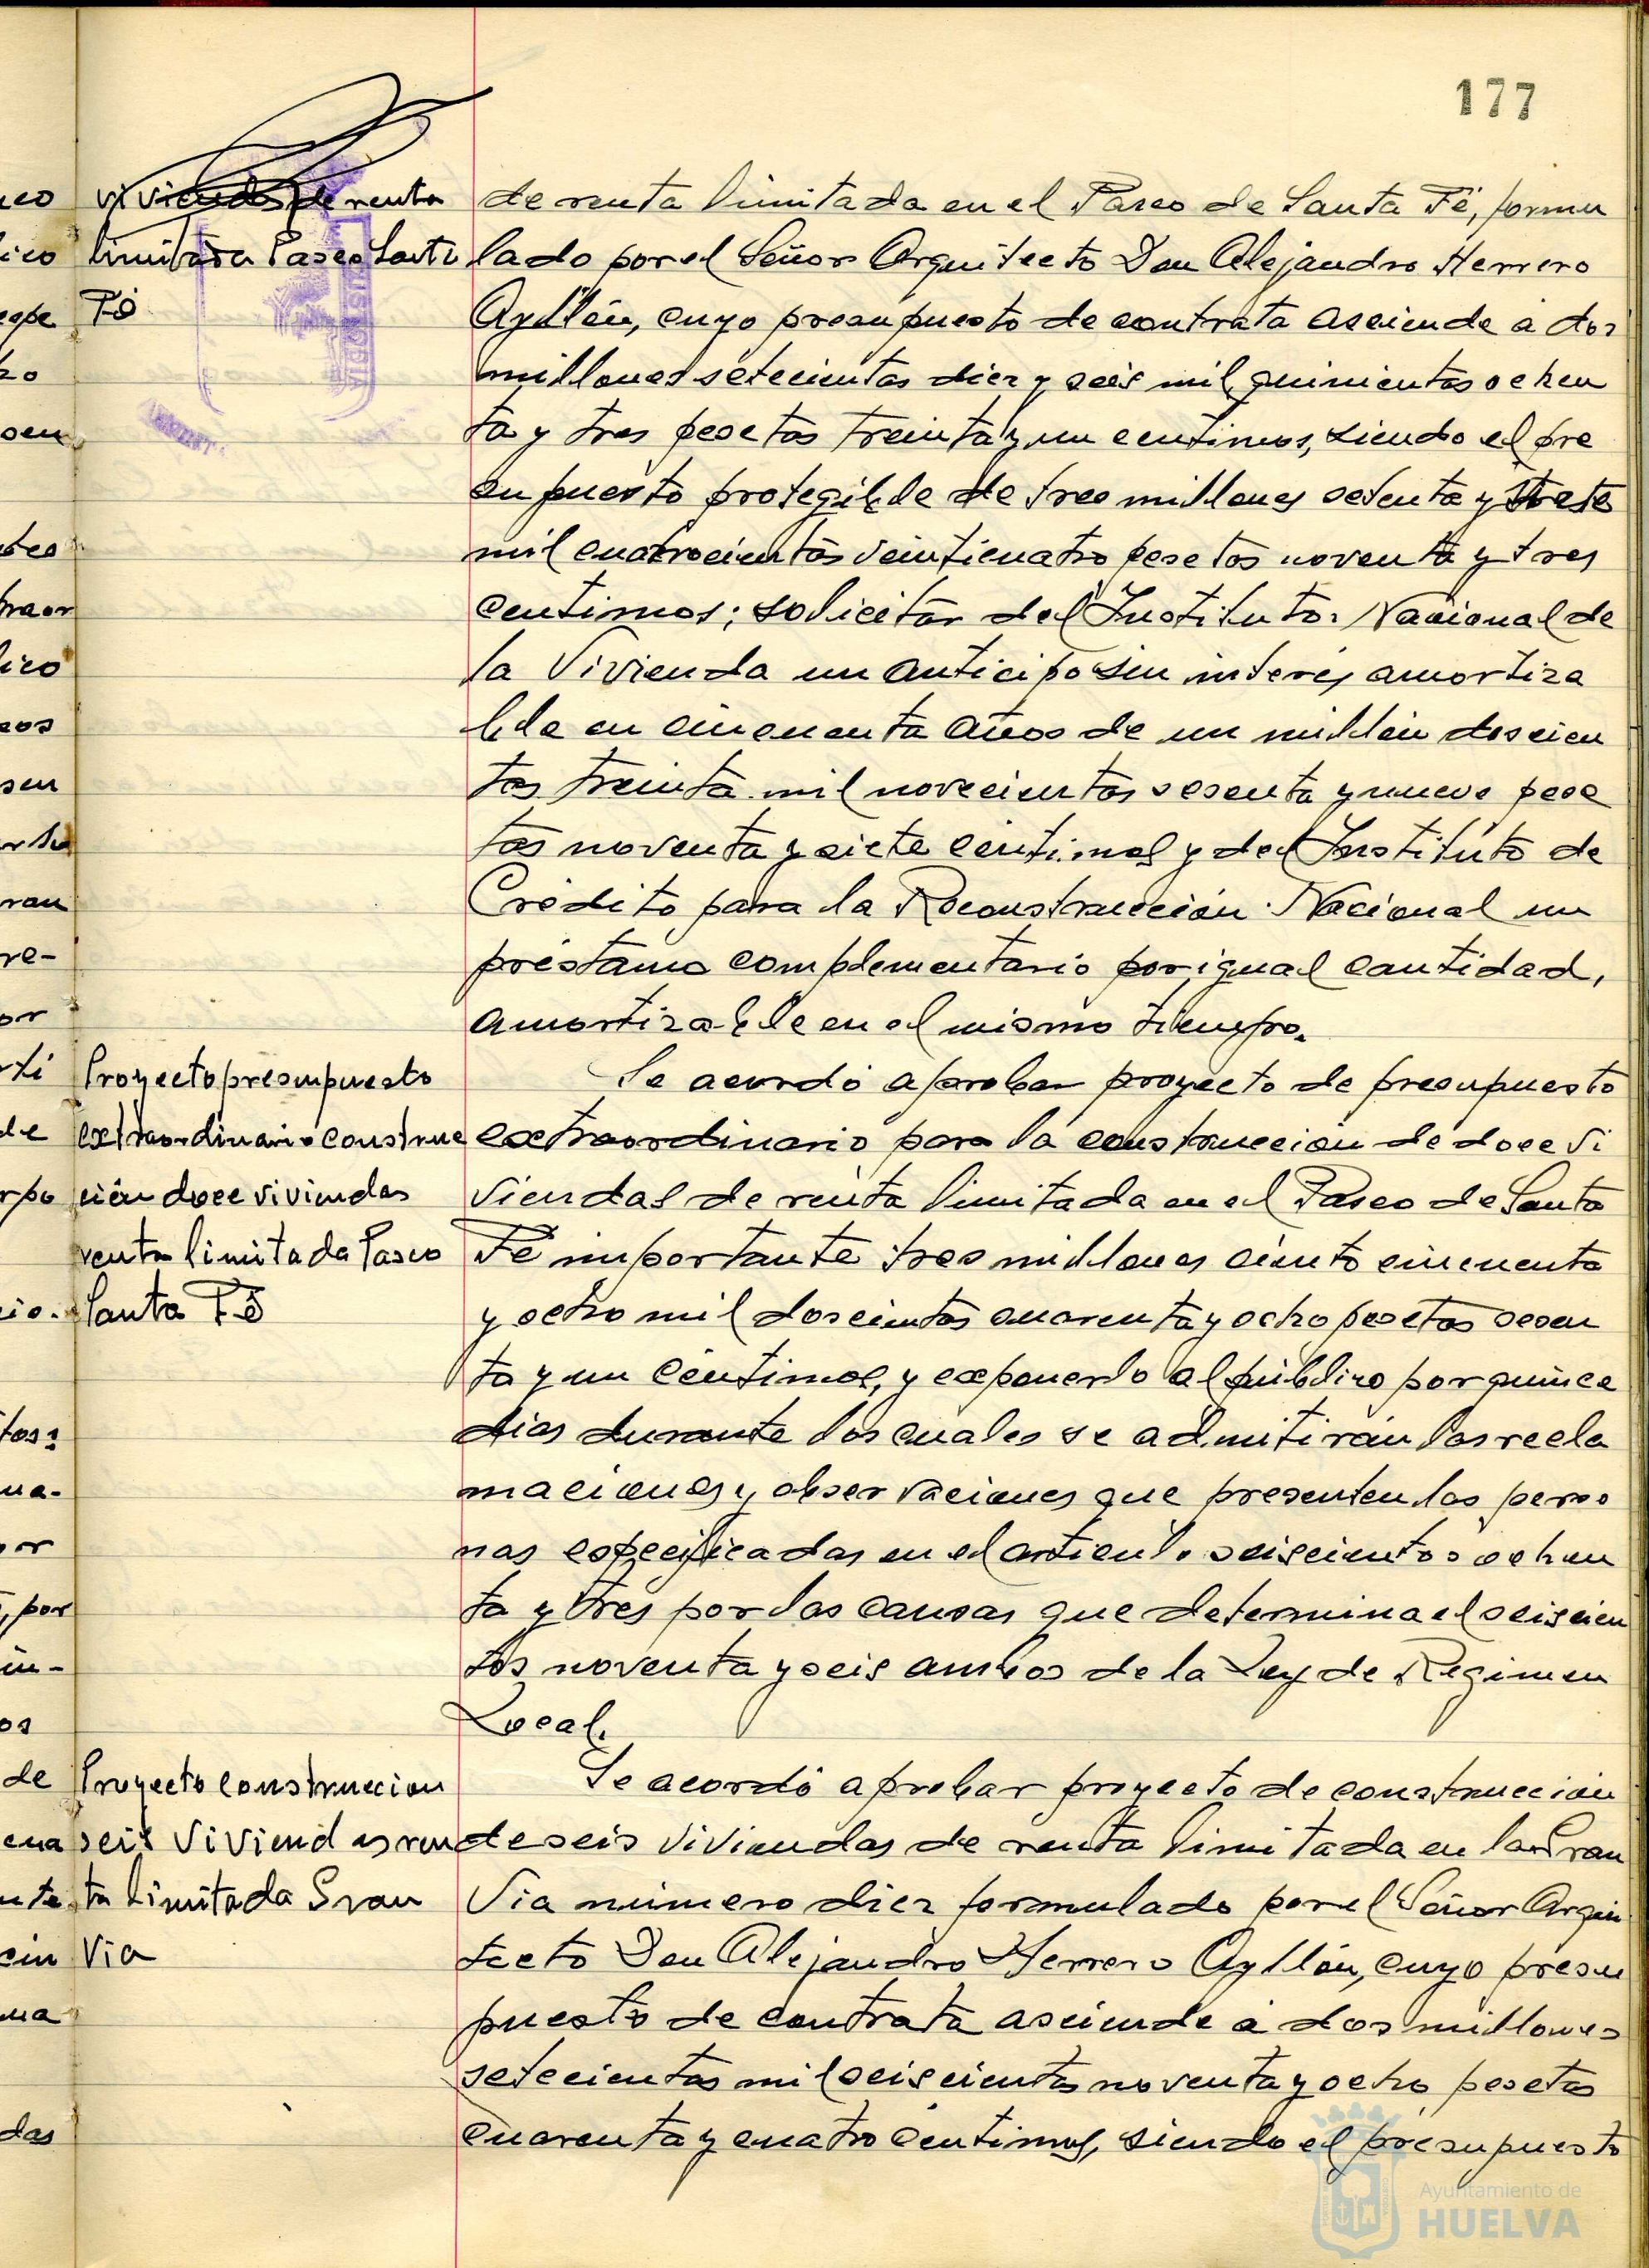 177
viviendas de renta
limitada Paseo Santa
Fé
de renta limitada en el Paseo de Santa Fé, formu
lado por el Señor Arquitecto Don Alejandro Herrero
Ayllón, cuyo presupuesto de contrata asciende a dos
millones setecientas diez y seis mil quinientas ochen
ta y tres pesetas treinta y un centimos, siendo el pre
supuesto protegible de tres millones setenta y siete
mil cuatrocientas veinticuatro pesetas noventa y tres
centimos; solicitar del Instituto Nacional de
la Vivienda un anticipo sin interés amortiza
ble en cincuenta años de un millón doscien
tas treinta mil novecientas sesenta y nueve pese
tas noventa y siete centimos y del Instituto de
Crédito para la Reconstrucción Nacional un
préstamo complementario por igual cantidad,
amortizable en el mismo tiempo.
Proyecto presupuesto
extraordinario construc
ción doce viviendas
renta limitada Paseo
Santa Fé
Se acordó aprobar proyecto de presupuesto
extraordinario para la construcción de doce vi
viendas de renta limitada en el Paseo de Santa
Fé importante tres millones ciento cincuenta
y ocho mil doscientas cuarenta y ocho pesetas sesen
ta y un centimos, y exponerlo al público por quince
dias durante los cuales se admitirán las recla
maciones y observaciones que presenten las perso
nas especificadas en el articulo seiscientos ochen
ta y tres por las causas que determina el seiscien
tos noventa y seis ambos de la Ley de Regimen
Local.
Proyecto construccion
seis viviendas ren
ta limitada Gran
Via
Se acordó aprobar proyecto de construcción
de seis viviendas de renta limitada en la Gran
Via número diez formulado por el Señor Arqui
tecto Don Alejandro Herrero Ayllón, cuyo presu
puesto de contrata asciende a dos millones
setecientas mil seiscientas noventa y ocho pesetas
cuarenta y cuatro centimos, siendo el presupuesto
Ayuntamiento de
HUELVA